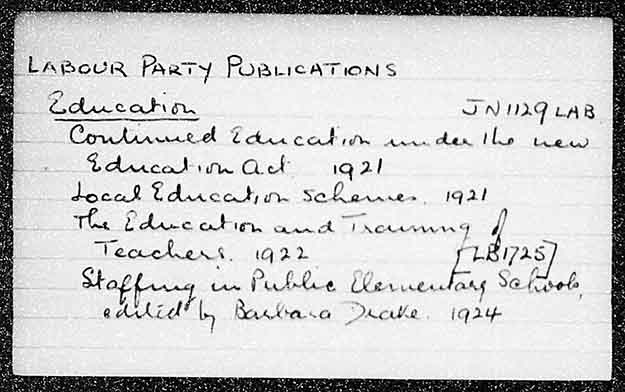 LABOUR PARTY PUBLICATIONS
Education JN1129 LAB
Continued Education under the new
Education Act 1921
Local Education Schemes. 1921
The Education and Training of
Teachers. 1922 [LB1725]
Staffing in Public Elementary Schools,
edited by Barbara Drake. 1924